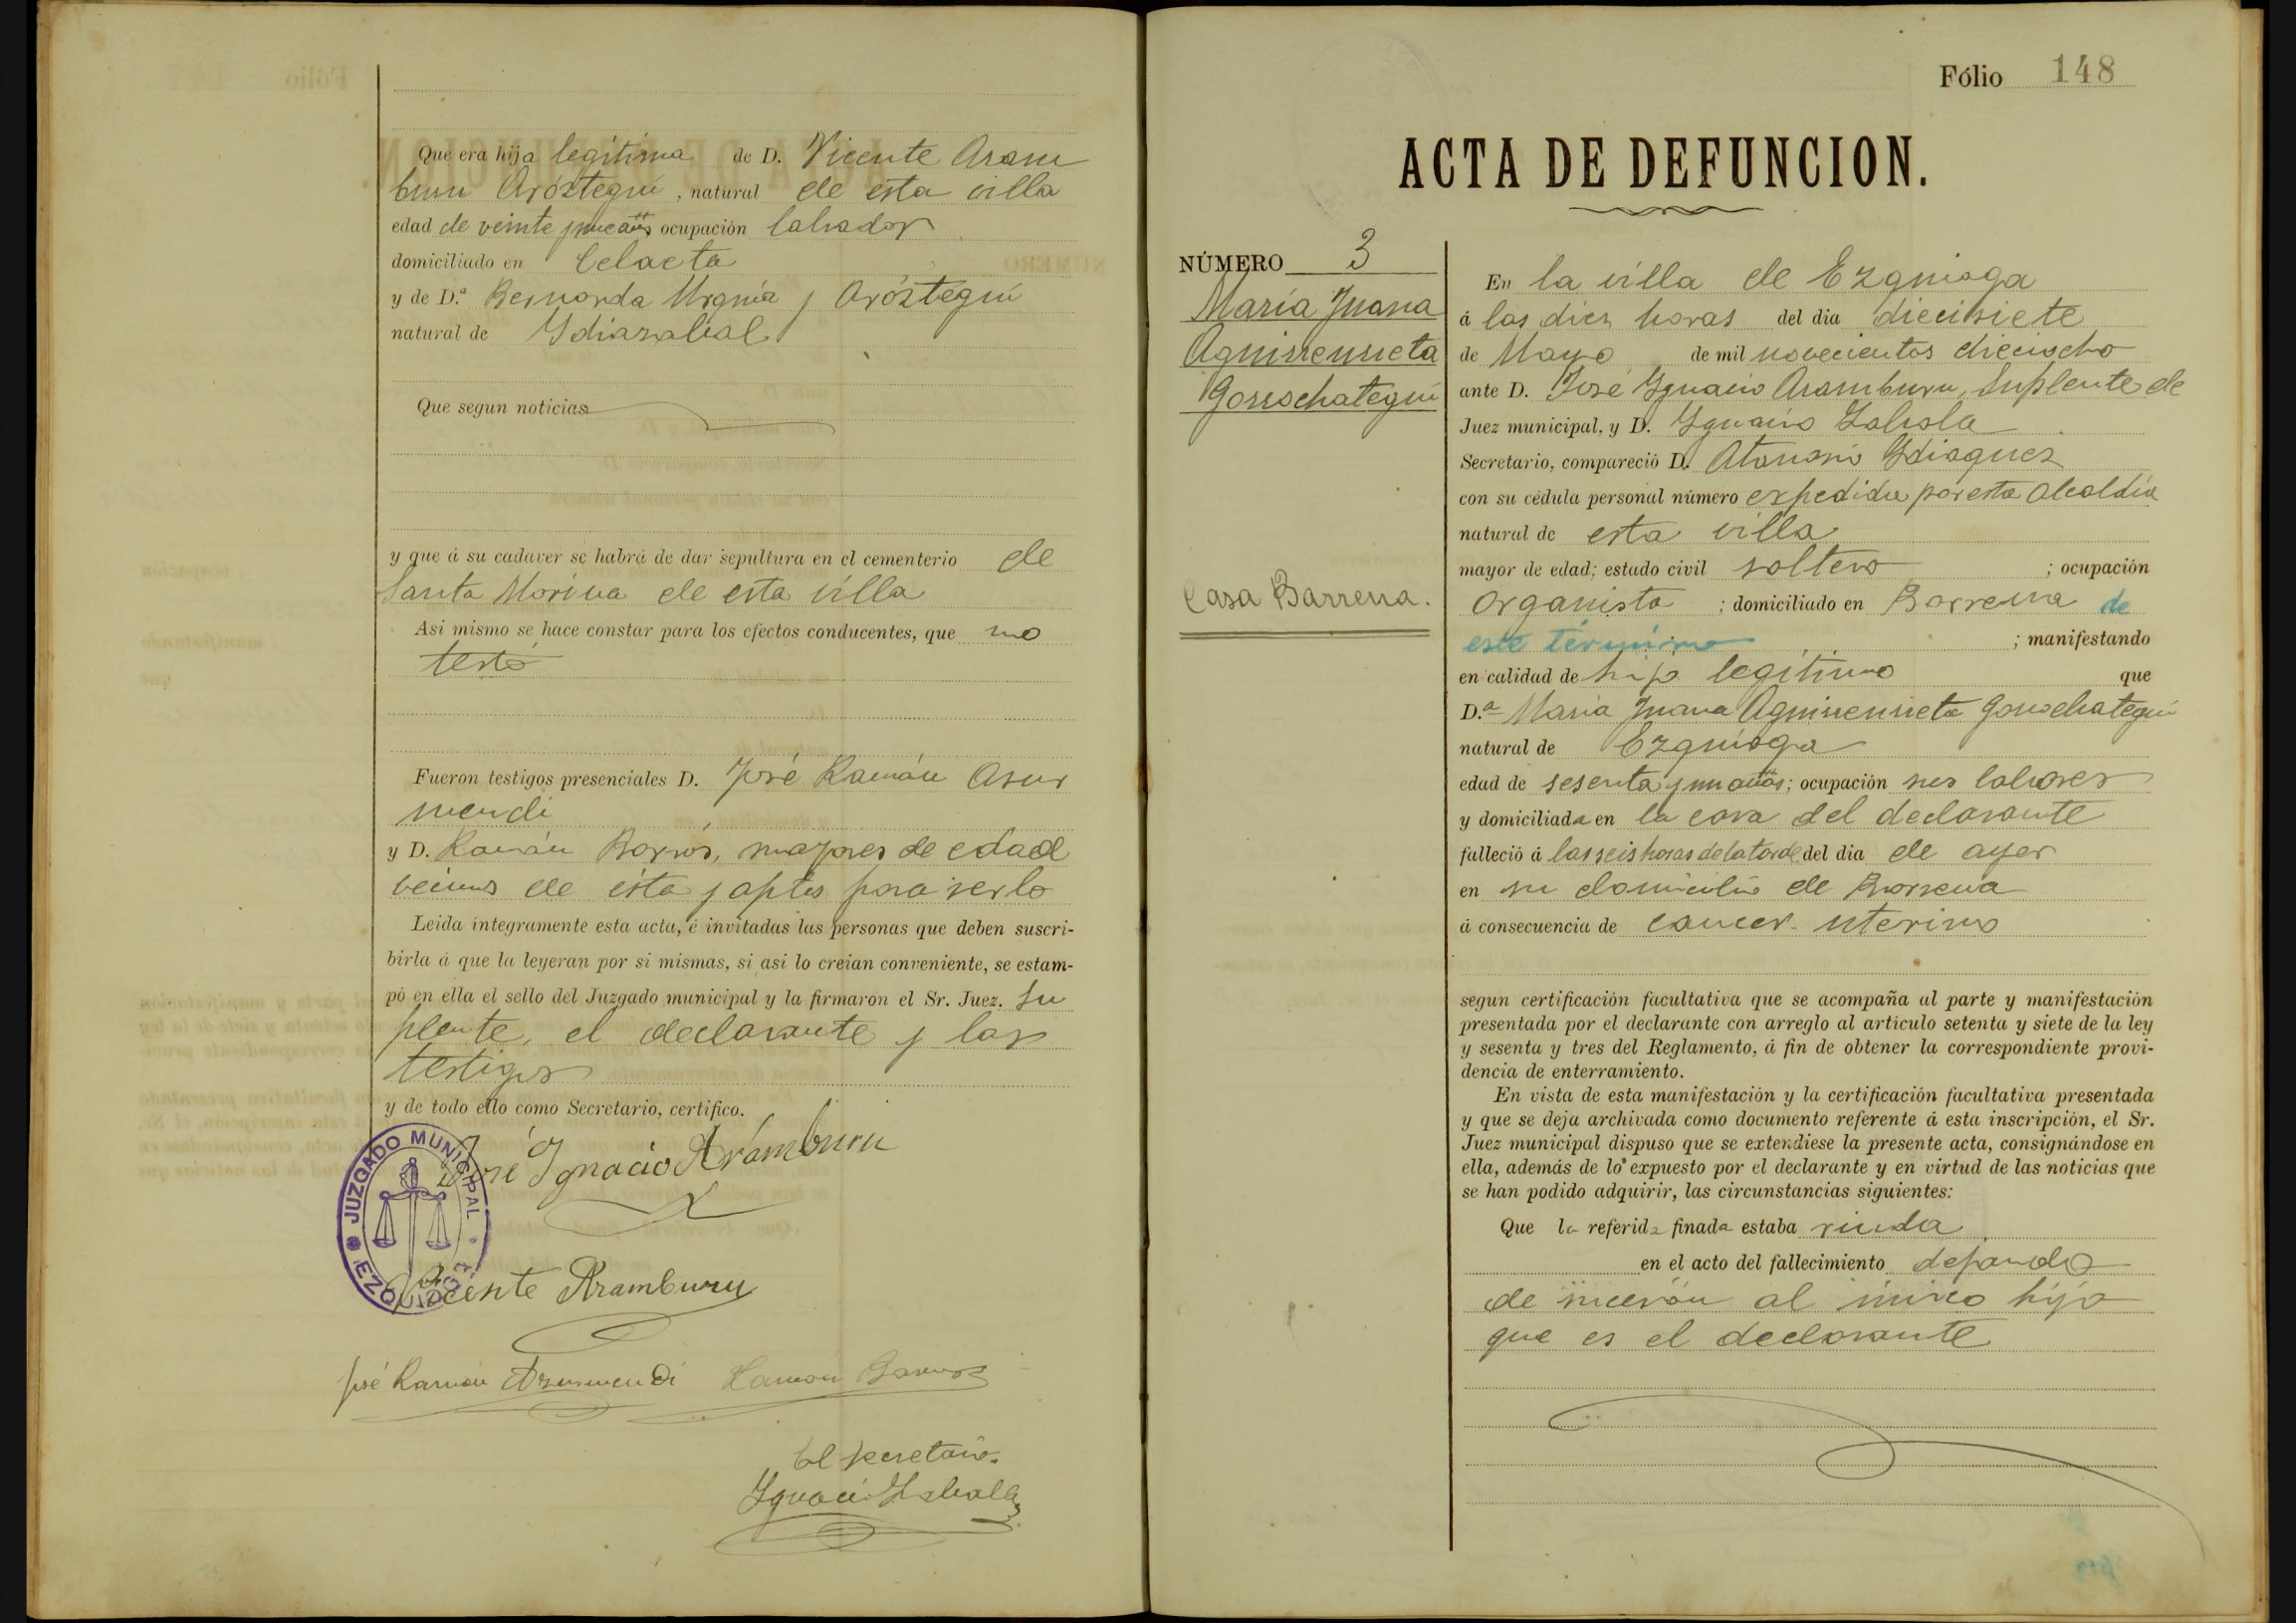 Que era hija legítima de D. Vicente Aram
buru Aróztegui, natural de esta villa
edad de veinte años ocupación labrador
domiciliado en Celaeta
y de D.ª Bernarda Urguía y Aróztegui
natural de Ydiazabal
Que segun noticias
y que á su cadaver se habrá de dar sepultura en el cementerio de
Santa Marina de esta villa
Asi mismo se hace constar para los efectos conducentes, que no
testó
Fueron testigos presenciales D. José Ramón Asur
mendi
y D. Ramón Barrós, mayores de edad
vecinos de ésta y aptos para serlo
Leida íntegramente esta acta, é invitadas las personas que deben suscri-
birla á que la leyeran por si mismas, si asi lo creian conveniente, se estam-
pó en ella el sello del Juzgado municipal y la firmaron el Sr. Juez. Su
plente, el declarante y los
testigos
y de todo ello como Secretario, certifico.
José Ygnacio Aramburu
JUZGADO MUNICIPAL
Vicente Aramburu
José Ramón Asurmendi Ramón Barrós
El secretario.
Ygnacio Zabala
Fólio 148
ACTA DE DEFUNCION.
NÚMERO 3
María Juana
Aguirreurreta
Gorrochategui
Casa Barrena.
En la villa de Ezquioga
á las diez horas del dia diecisiete
de Mayo de mil novecientos dieciocho
ante D. José Ygnacio Aramburu, Suplente de
Juez municipal, y D. Ygnacio Zabala
Secretario, compareció D. Atanasio Ydiaquez
con su cédula personal número expedida por esta Alcaldía
natural de esta villa
mayor de edad; estado civil soltero ; ocupación
organista ; domiciliado en Barrena de
este término ; manifestando
en calidad de hijo legítimo que
D.ª María Juana Aguirreurreta Gorrochategui
natural de Ezquioga
edad de sesenta y un años; ocupación sus labores
y domiciliada en la casa del declarante
falleció á las seis horas de la tarde del dia de ayer
en su domicilio de Barrena
á consecuencia de cancer uterino
segun certificación facultativa que se acompaña al parte y manifestación
presentada por el declarante con arreglo al artículo setenta y siete de la ley
y sesenta y tres del Reglamento, á fin de obtener la correspondiente provi-
dencia de enterramiento.
En vista de esta manifestación y la certificación facultativa presentada
y que se deja archivada como documento referente á esta inscripción, el Sr.
Juez municipal dispuso que se extendiese la presente acta, consignándose en
ella, además de lo expuesto por el declarante y en virtud de las noticias que
se han podido adquirir, las circunstancias siguientes:
Que la referida finada estaba viuda
en el acto del fallecimiento dejando
de sucesión al único hijo
que es el declarante